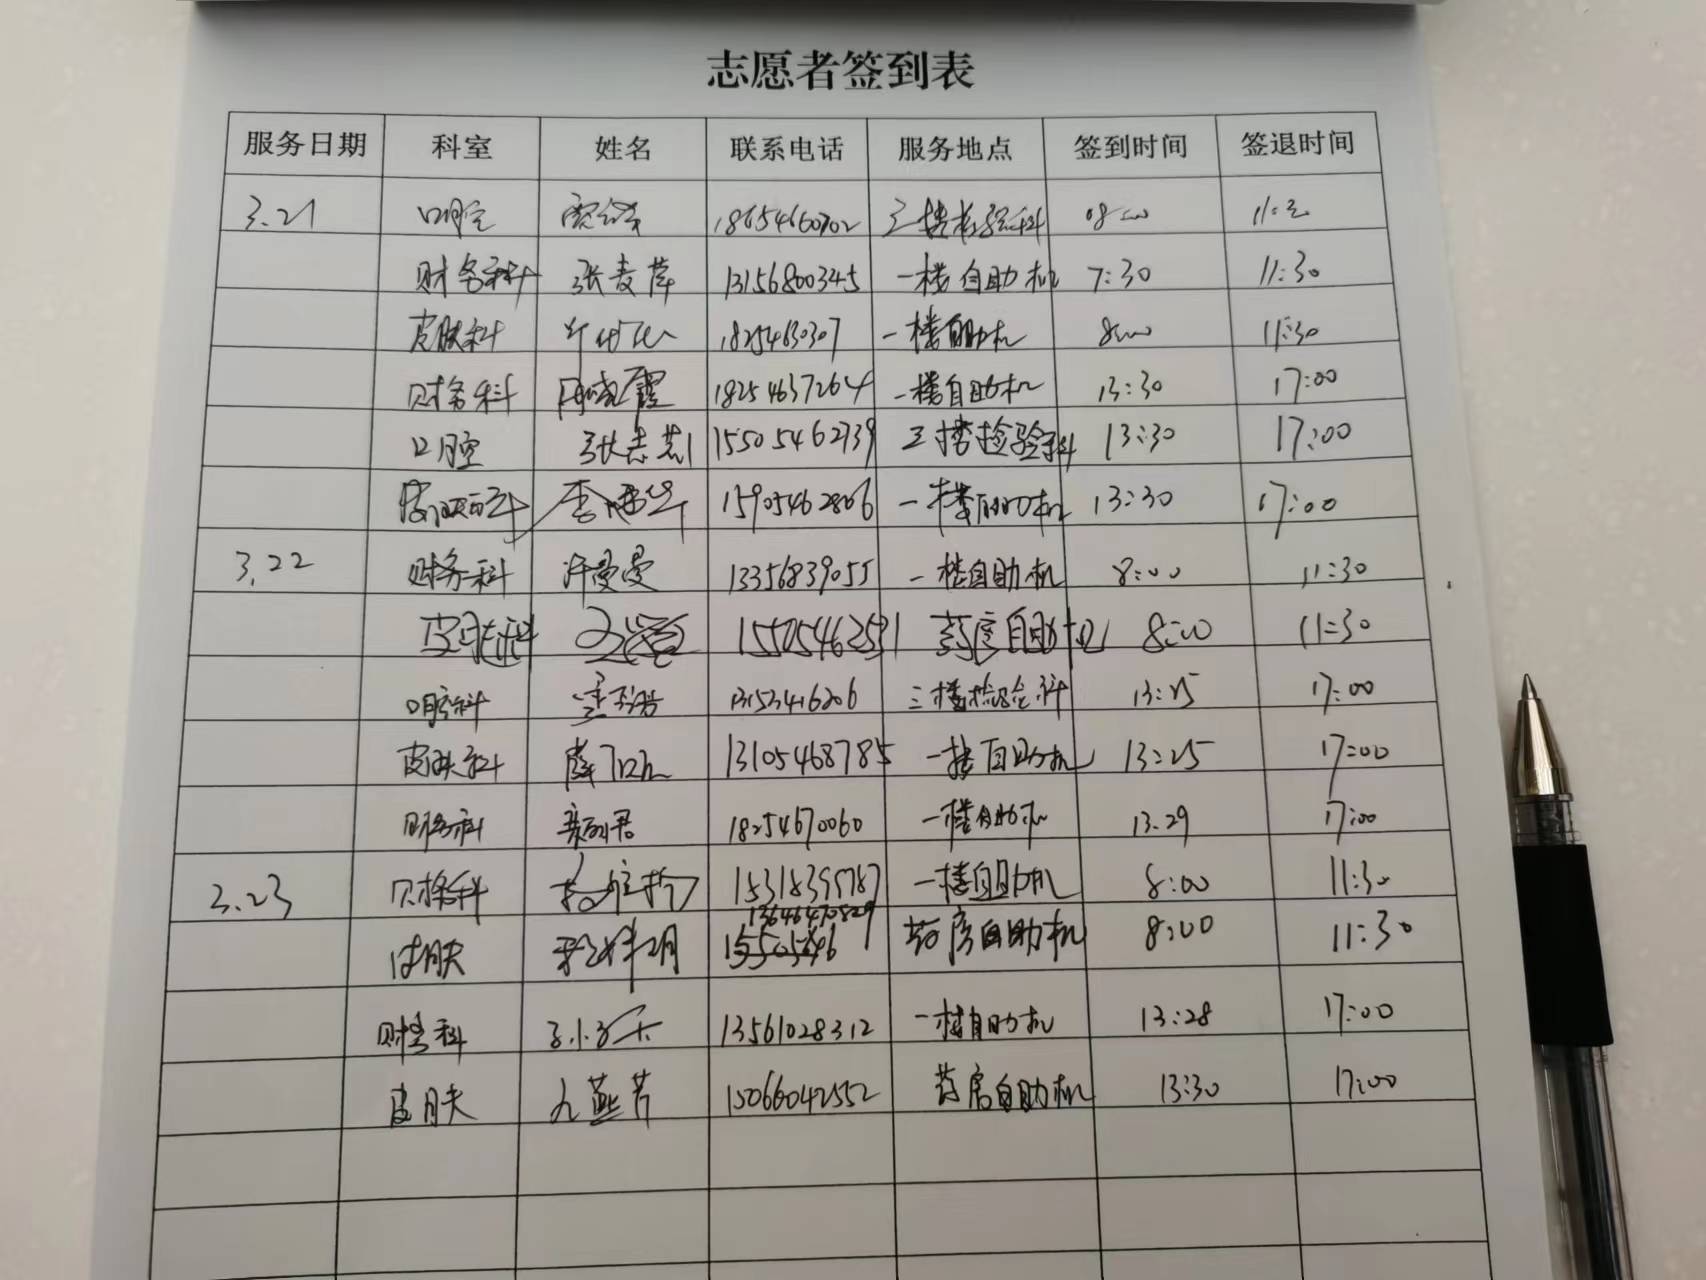 志愿者签到表
服务日期 科室 姓名 联系电话 服务地点 签到时间 签退时间
3.21 口腔 18654660702 三楼检验科 08:00
财务科 张麦萍 13156800345 一楼自助机 7:30 11:30
皮肤科 1825480307 一楼自助机 8:00 11:30
财务科 18254637264 一楼自助机 13:30 17:00
口腔 15505462739 三楼检验科 13:30 17:00
15905462806 一楼自助机 13:30 17:00
3.22 财务科 许曼曼 13356839055 一楼自助机 8:00 11:30
皮肤科 药房自助机 8:00 11:30
口腔科 13153416206 三楼检验科 13:25 17:00
皮肤科 13105468785 一楼自助机 13:25 17:00
财务科 18254670060 一楼自助机 13.29 17:00
3.23 财务科 一楼自助机 8:00 11:30
皮肤 13646470829 药房自助机 8:00 11:30
财务科 13561028312 一楼自助机 13:28 17:00
皮肤 15066042552 药房自助机 13:30 17:00